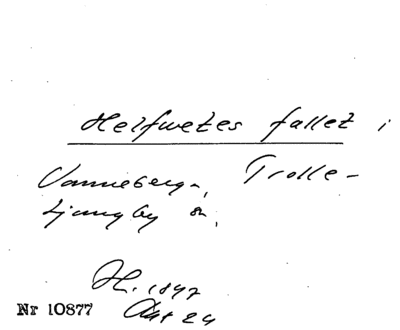 Helfwetes fallet i
Vanneberga, Trolle-
Ljungby sn.
H. 1847
Nr 10877